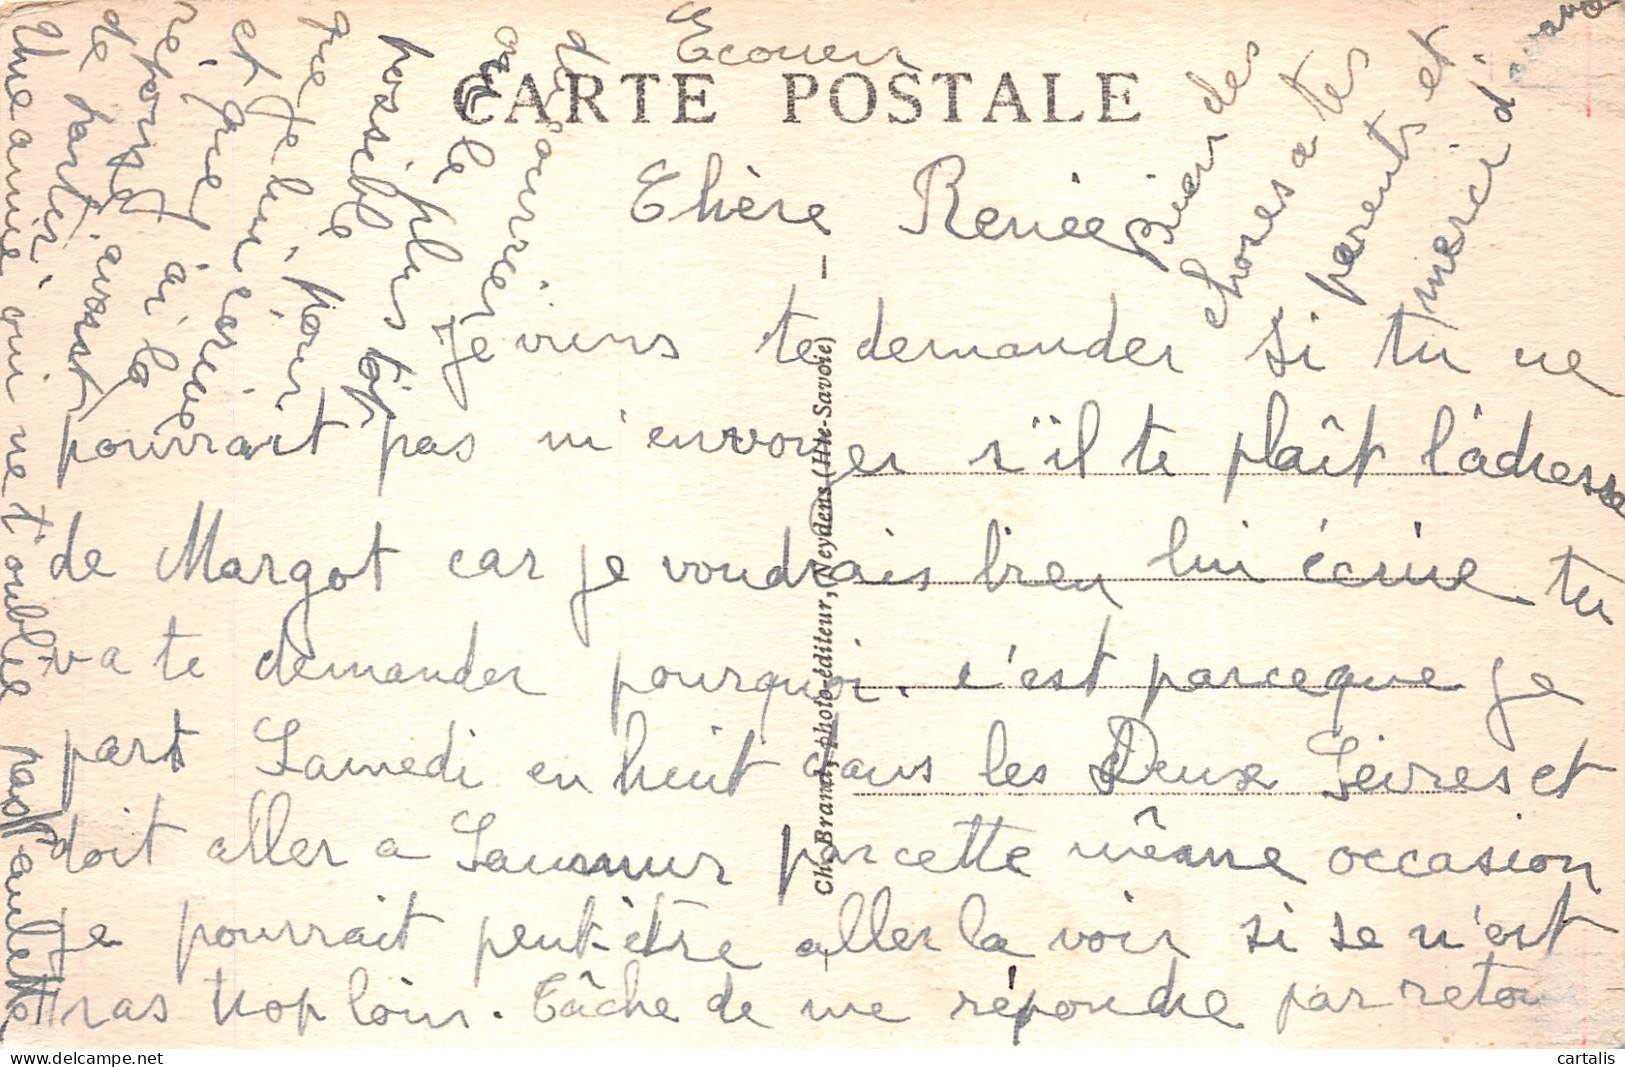 Ecouen
CARTE POSTALE
Chère Renée
Je viens te demander si tu ne
pourrait pas m'envoyer s'il te plaît l'adresse
de Margot car je voudrais bien lui écrire tu
va te demander pourquoi. c'est parceque je
part Samedi en huit dans les Deux Sèvres et
doit aller a Saumur par cette même occasion
Je pourrait peut-être aller la voir si se n'est
pas trop loin. Tâche de me répondre par retour
de courrier
ou le
plus tôt
possible
que je lui
et que j'
reponse
de partir avant
Une amie qui ne t'oublie pas Paulette
Bien des
choses a tes
parents et
merci d'avance
Ch. Brand, photo-éditeur, Neydens (Hte-Savoie)
cartalis